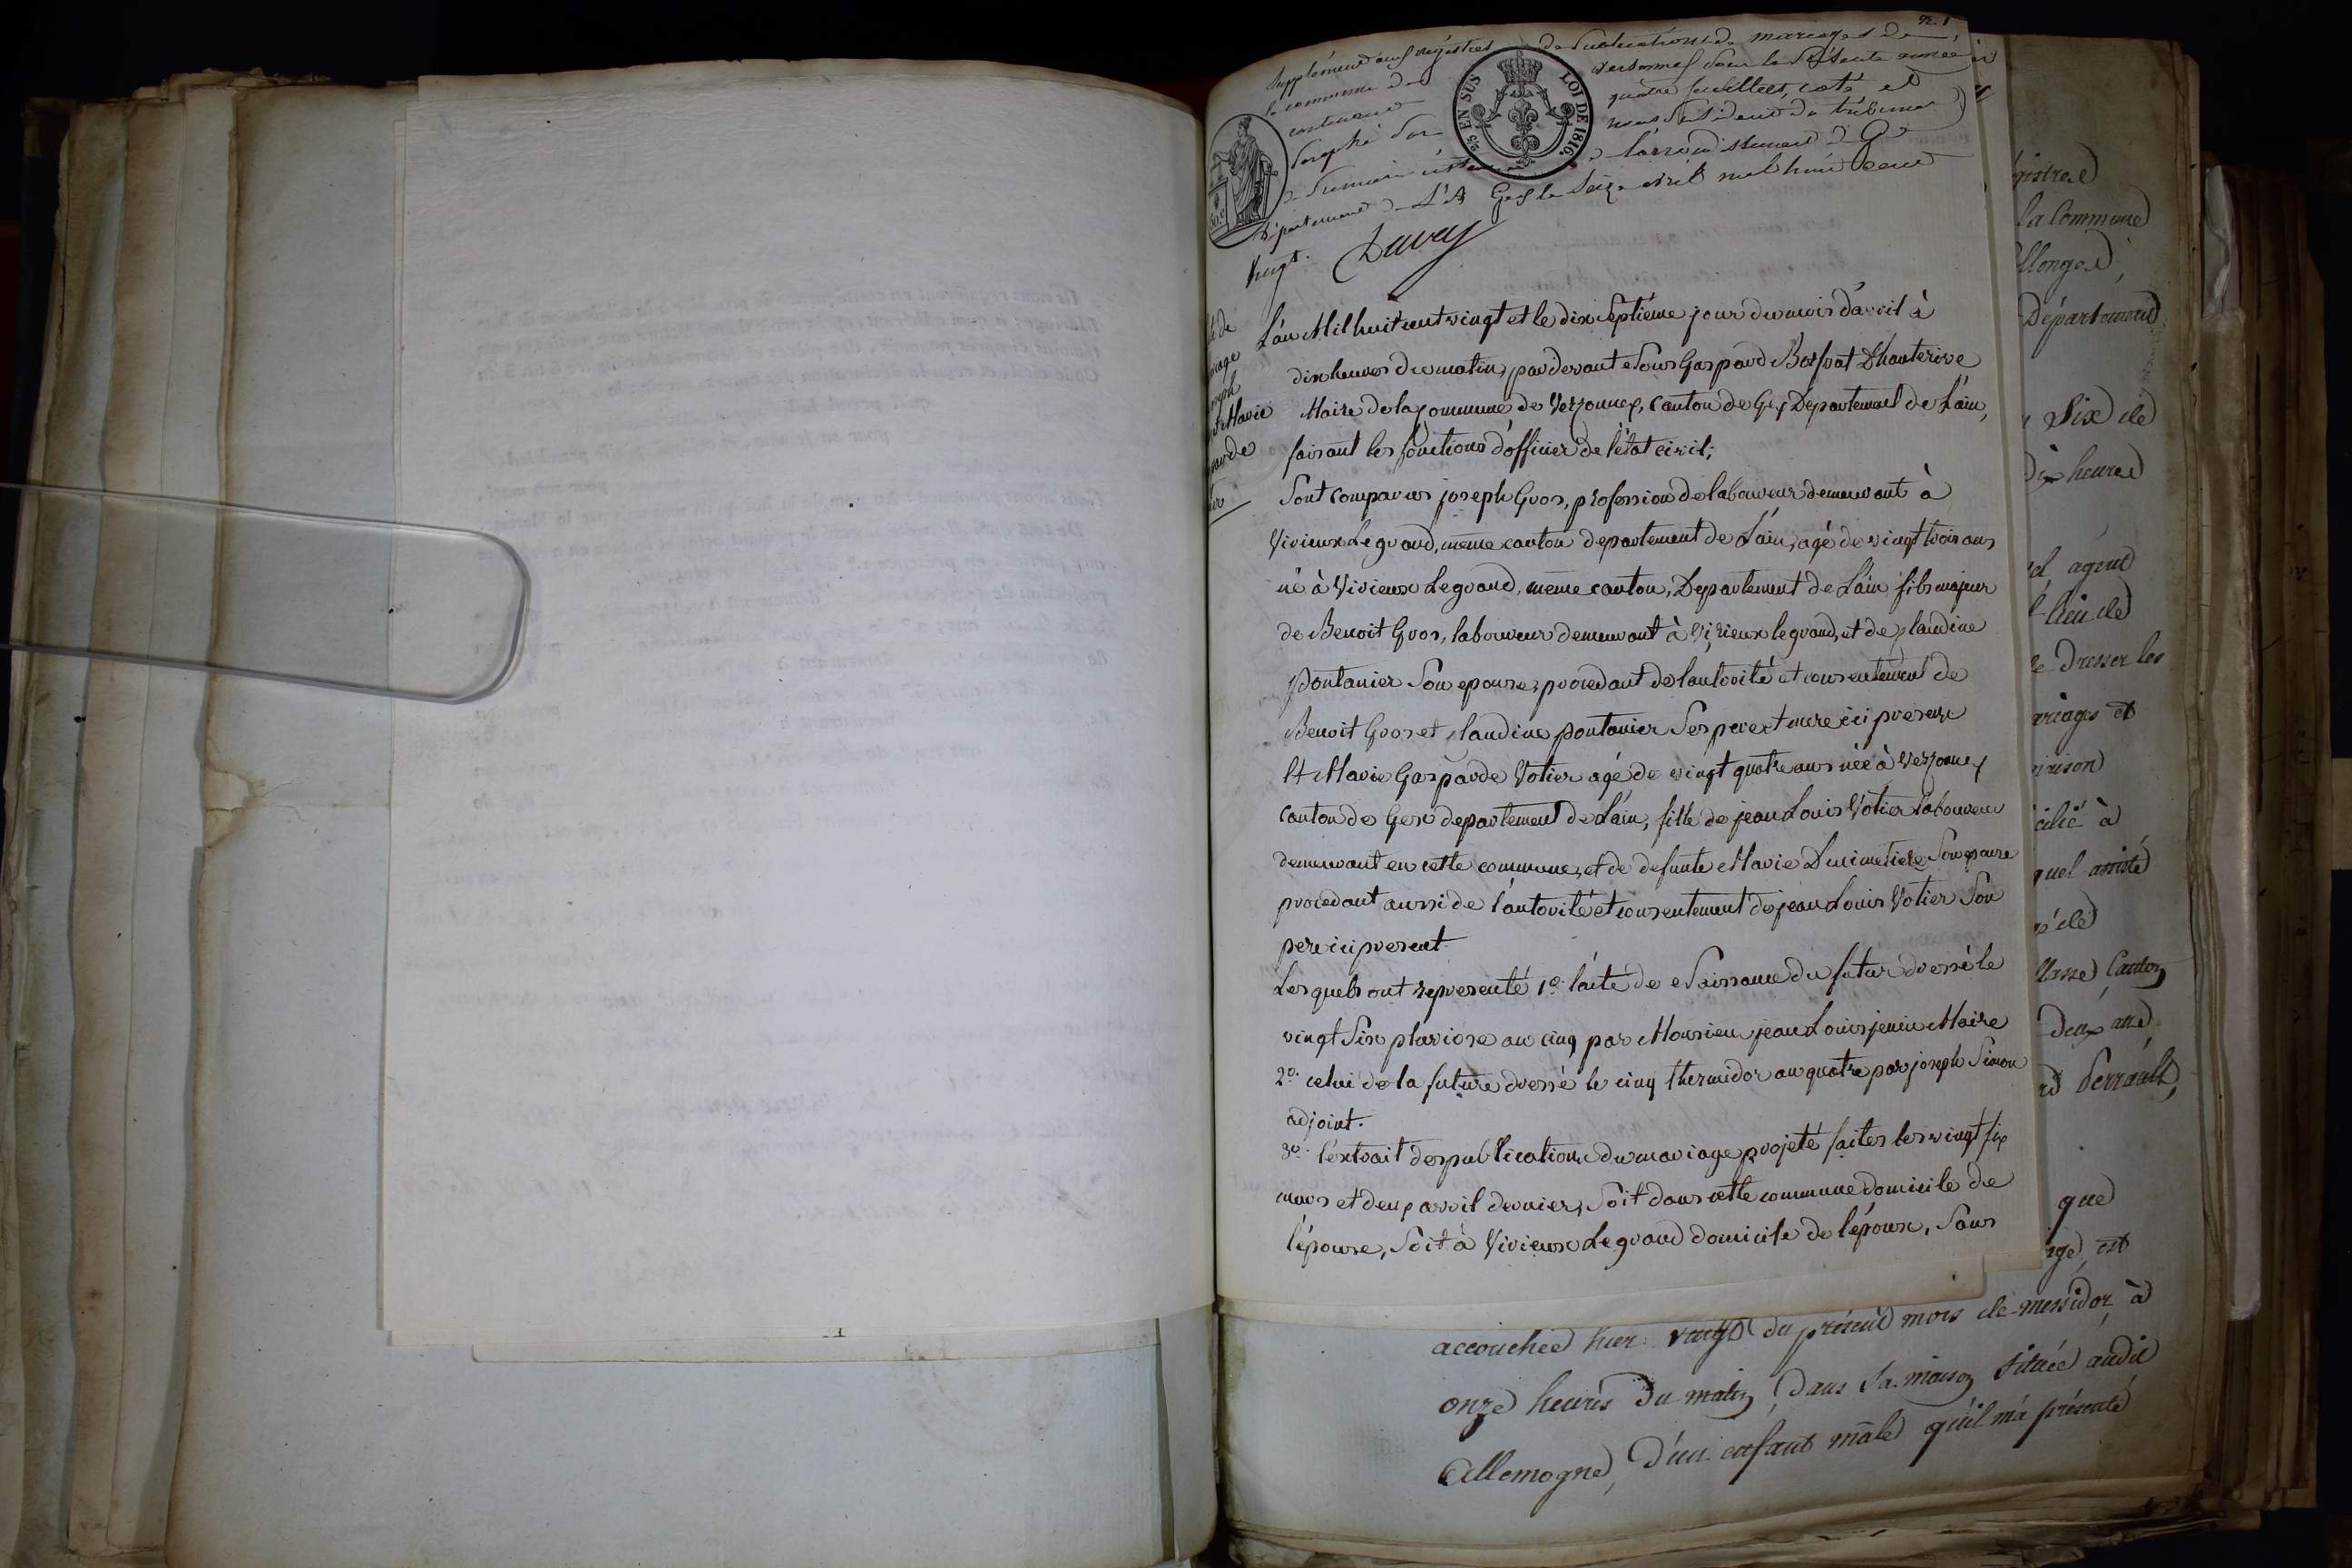 n° 1
Supplément aux registres de publications de mariages de
la commune de versonnex pour la présente année
contenant quatre feuillets, coté et
paraphé par nous président du tribunal
de première instance de l'arrondissement de G
département de l'A Gex le seize avril mil huit cent
vingt.
EN SUS
LOI DE 1816.
L'an Mil huit cent vingt et le dix Septième jour du mois d'avril à
dix heures du matin, par devant Nous Gaspard Dhauterive
Maire de la Commune de Versonnex, Canton de Gex Département de L'ain,
faisant les fonctions d'officier de l'état civil;
Sont comparus joseph Gros, profession de laboureur demeurant à
Virieux Le grand, même canton departement de L'ain, agé de vingt trois ans
né à Virieux Le grand, même canton, Departement de L'ain fils majeur
de Benoit Gros, laboureur demeurant à Virieux le grand, et de claudine
pontanier Son epouse, procedant de l'autorité et consentement de
Benoit Gros et claudine pontanier Ses pere et mere ici presens
Et Marie Gasparde Votier agé de vingt quatre ans née à Versonnex
Canton de Gex departement de L'ain, fille de jean Louis Votier laboureur
demeurant en cette commune, et de defunte Marie Ducimetiere Son epouse
procedant aussi de l'autorité et consentement de jean Louis Votier Son
pere ici present.
Lesquels ont representé 1°. l'acte de Naissance du futur dressé le
vingt Six pluviose an cinq par Monsieur jean Louis jenin Maire
2°. celui de la future dressé le cinq thermidor an quatre par joseph Simon
adjoint.
3°. l'extrait des publications du mariage projeté faites les vingt six
mars et deux avril dernier, Soit dans cette commune domicile de
l'épouse, Soit à Virieux Le grand domicile de l'époux, Sans
et Marie
la Commune
Département
Six de
Dix heures
agent
lieu de
de Dresser les
mariages et
à
quel assisté
Canton
Deux ans
Perrault,
que
est
accouchée hier vingt du présent mois de messidor à
onze heures du matin, Dans Sa maison située audit
Allemogne, D'un enfant mâle qu'il m'a présenté